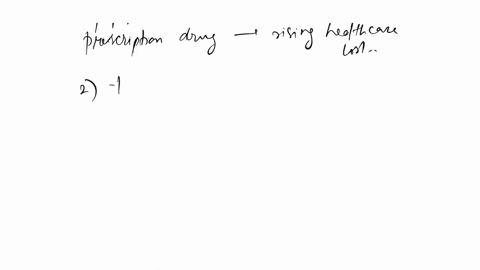 prescription drug → rising healthcare
cost..
2) -1